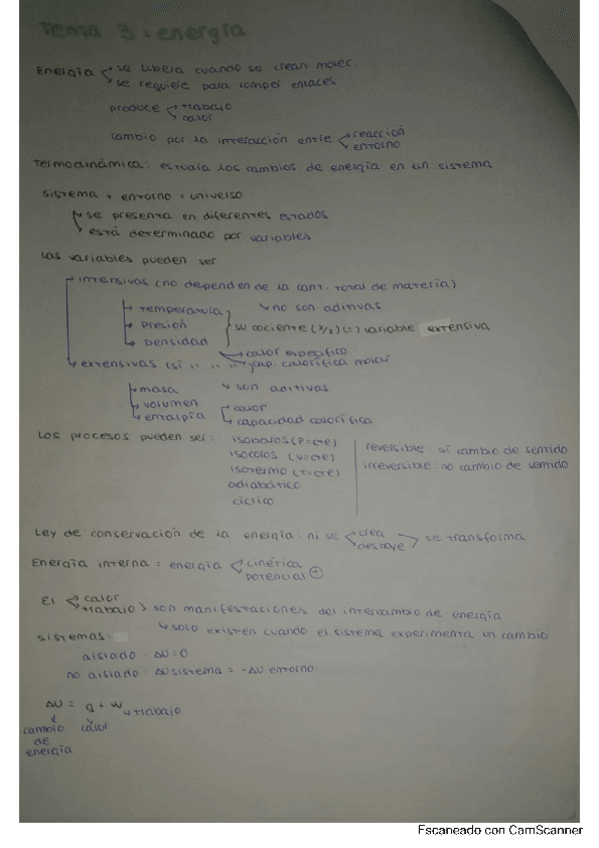 Tema 3: energía
Energía se libera cuando se crean
se requiere para romper enlaces
produce trabajo
calor
cambio por la interacción entre reacción
entorno
Termodinámica: estudia los cambios de energía en un sistema
sistema + entorno = universo
se presenta en diferentes estados
está determinado por variables
Las variables pueden ser
intensivas (no dependen de la cant. total de materia)
temperatura no son aditivas
presión su cociente (y/x) (=) variable extensiva
densidad
calor específico
extensivas (sí " " " cap. calorífica molar
masa son aditivas
volumen calor
entalpía capacidad calorífica
Los procesos pueden ser: isobaros (P=cte) reversible: sí cambio de sentido
isocoros (V=cte) irreversible: no cambio de sentido
isotermo (T=cte)
adiabático
cíclico
Ley de conservación de la energía: ni se crea se transforma
destruye
Energía interna = energía cinética
potencial +
El calor
trabajo son manifestaciones del intercambio de energía
solo existen cuando el sistema experimenta un cambio
sistemas:
aislado: ΔU=0
no aislado: ΔU sistema = -ΔU entorno
ΔU = q + w trabajo
cambio calor
de
energía
Escaneado con CamScanner